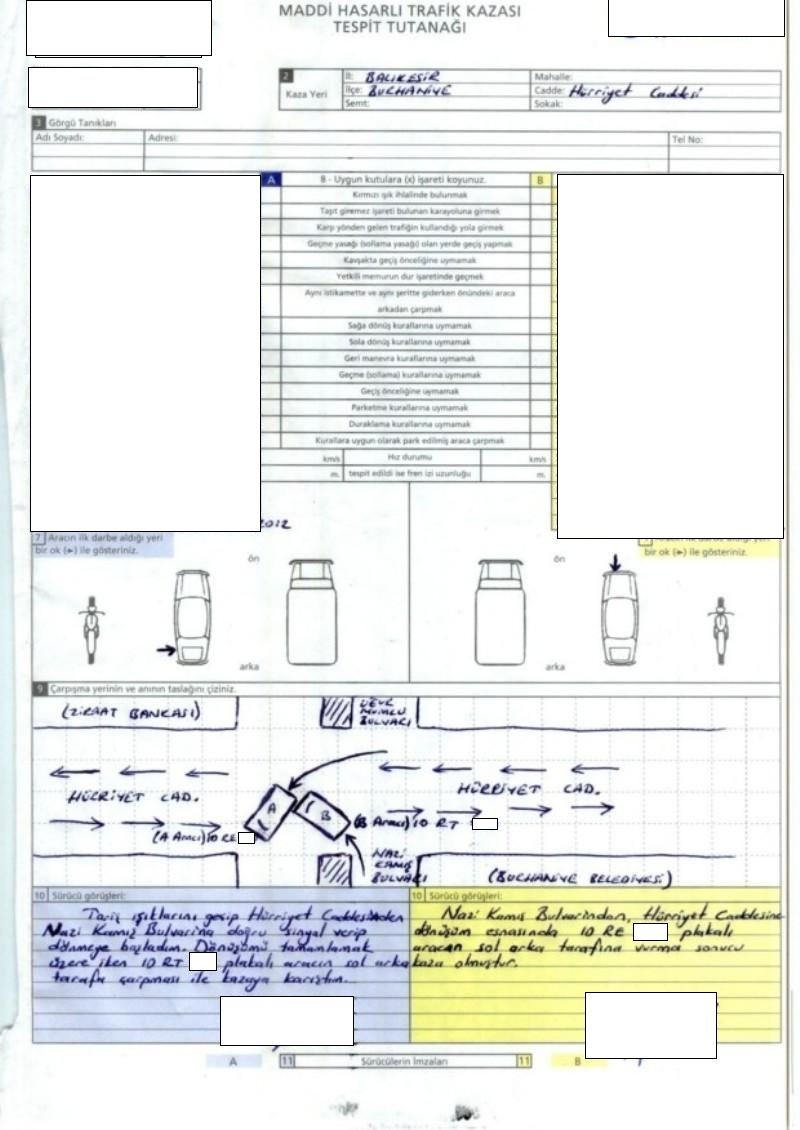 MADDİ HASARLI TRAFİK KAZASI
TESPİT TUTANAĞI
2
Kaza Yeri
İl: BALIKESİR
İlçe: BURHANİYE
Semt:
Mahalle:
Cadde: Hürriyet Caddesi
Sokak:
3 Görgü Tanıkları
Adı Soyadı:
Adresi:
Tel No:
A
8 - Uygun kutulara (x) işareti koyunuz.
B
Kırmızı ışık ihlalinde bulunmak
Taşıt giremez işareti bulunan karayoluna girmek
Karşı yönden gelen trafiğin kullandığı yola girmek
Geçme yasağı (sollama yasağı) olan yerde geçiş yapmak
Kavşakta geçiş önceliğine uymamak
Yetkili memurun dur işaretinde geçmek
Aynı istikamette ve aynı şeritte giderken önündeki araca
arkadan çarpmak
Sağa dönüş kurallarına uymamak
Sola dönüş kurallarına uymamak
Geri manevra kurallarına uymamak
Geçme (sollama) kurallarına uymamak
Geçiş önceliğine uymamak
Parketme kurallarına uymamak
Duraklama kurallarına uymamak
Kurallara uygun olarak park edilmiş araca çarpmak
km/s Hız durumu km/s
m. tespit edildi ise fren izi uzunluğu m.
2012
7 Aracın ilk darbe aldığı yeri
bir ok (►) ile gösteriniz.
ön
arka
ön
arka
Aracın ilk darbe aldığı yeri
bir ok (►) ile gösteriniz.
9 Çarpışma yerinin ve anının taslağını çiziniz.
(ZİRAAT BANKASI)
BULVARI
HÜRRİYET CAD.
HÜRRİYET CAD.
A
B
(A Aracı) 10 RE
(B Aracı) 10 RT
NAZİ
KAMIŞ
BULVARI
(BURHANİYE BELEDİYESİ)
10 Sürücü görüşleri:
Tariş ışıklarını geçip Hürriyet Caddesinden
Nazi Kamış Bulvarına doğru sinyal verip
dönmeye başladım. Dönüşümü tamamlamak
üzere iken 10 RT plakalı aracın sol arka
tarafa çarpması ile kazaya karıştım.
10 Sürücü görüşleri:
Nazi Kamış Bulvarından, Hürriyet Caddesine
dönüşüm esnasında 10 RE plakalı
aracan sol arka tarafına vurma sonucu
kaza olmuştur.
A
11 Sürücülerin İmzaları 11
B